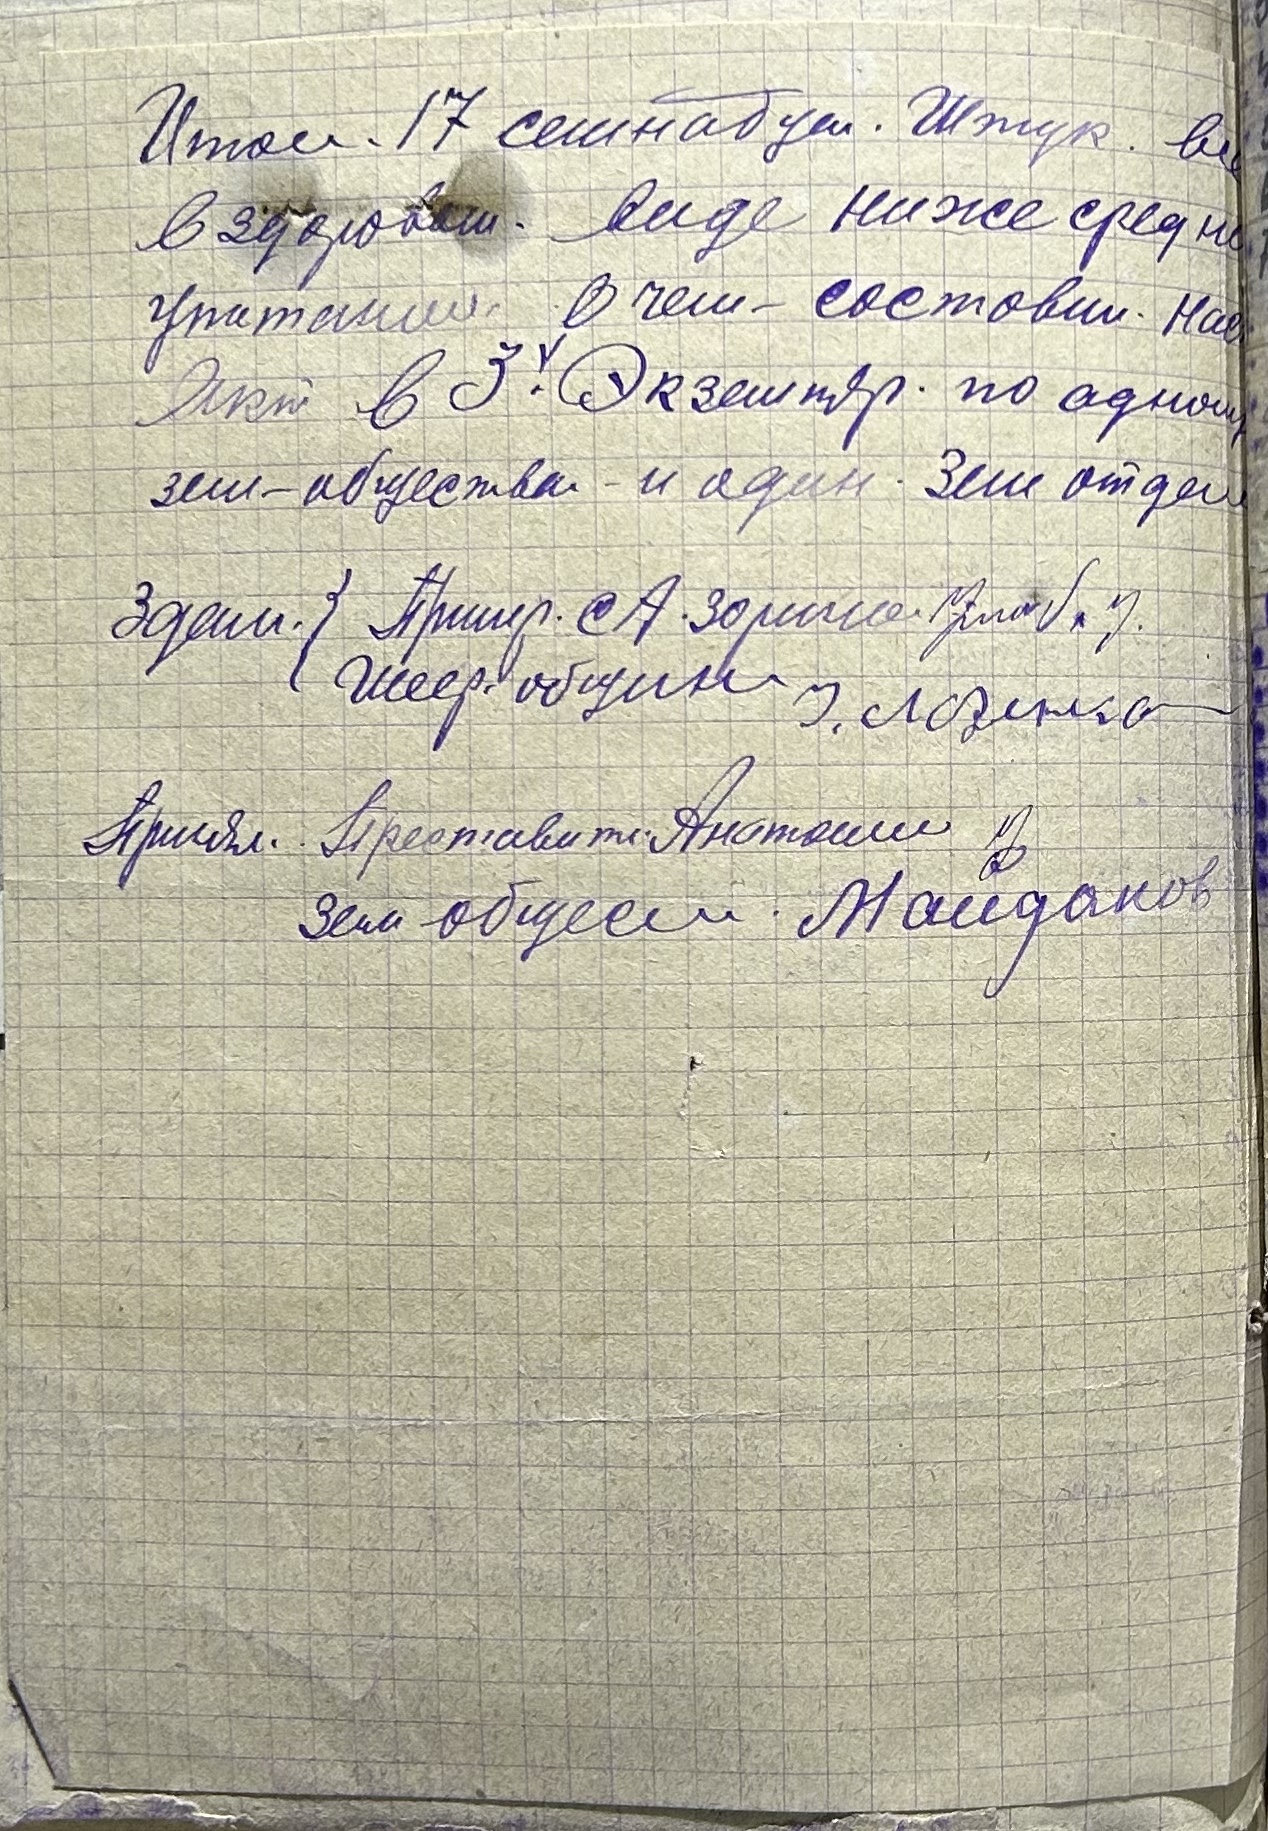 Итого. 17 семнадцать. Штук. вс
в здоровом. виде ниже средне
упитания. О чем – составил. нас
Акт в 3х Экземпляр. по одному
зем – общества – и один. Зем отдел
Здали. Пример. С А.
Шеер. общин
Принял. Преставит. Анатоли
Зем общес. Майданов